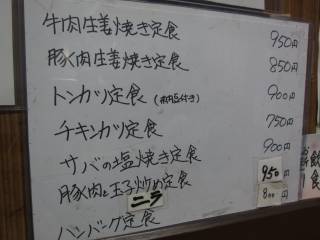 牛肉生姜焼き定食 950円
豚肉生姜焼き定食 850円
トンカツ定食 900円
チキンカツ定食 750円
サバの塩焼き定食 900円
豚肉と玉子炒め定食 950
ニラ 800円
ハンバーグ定食